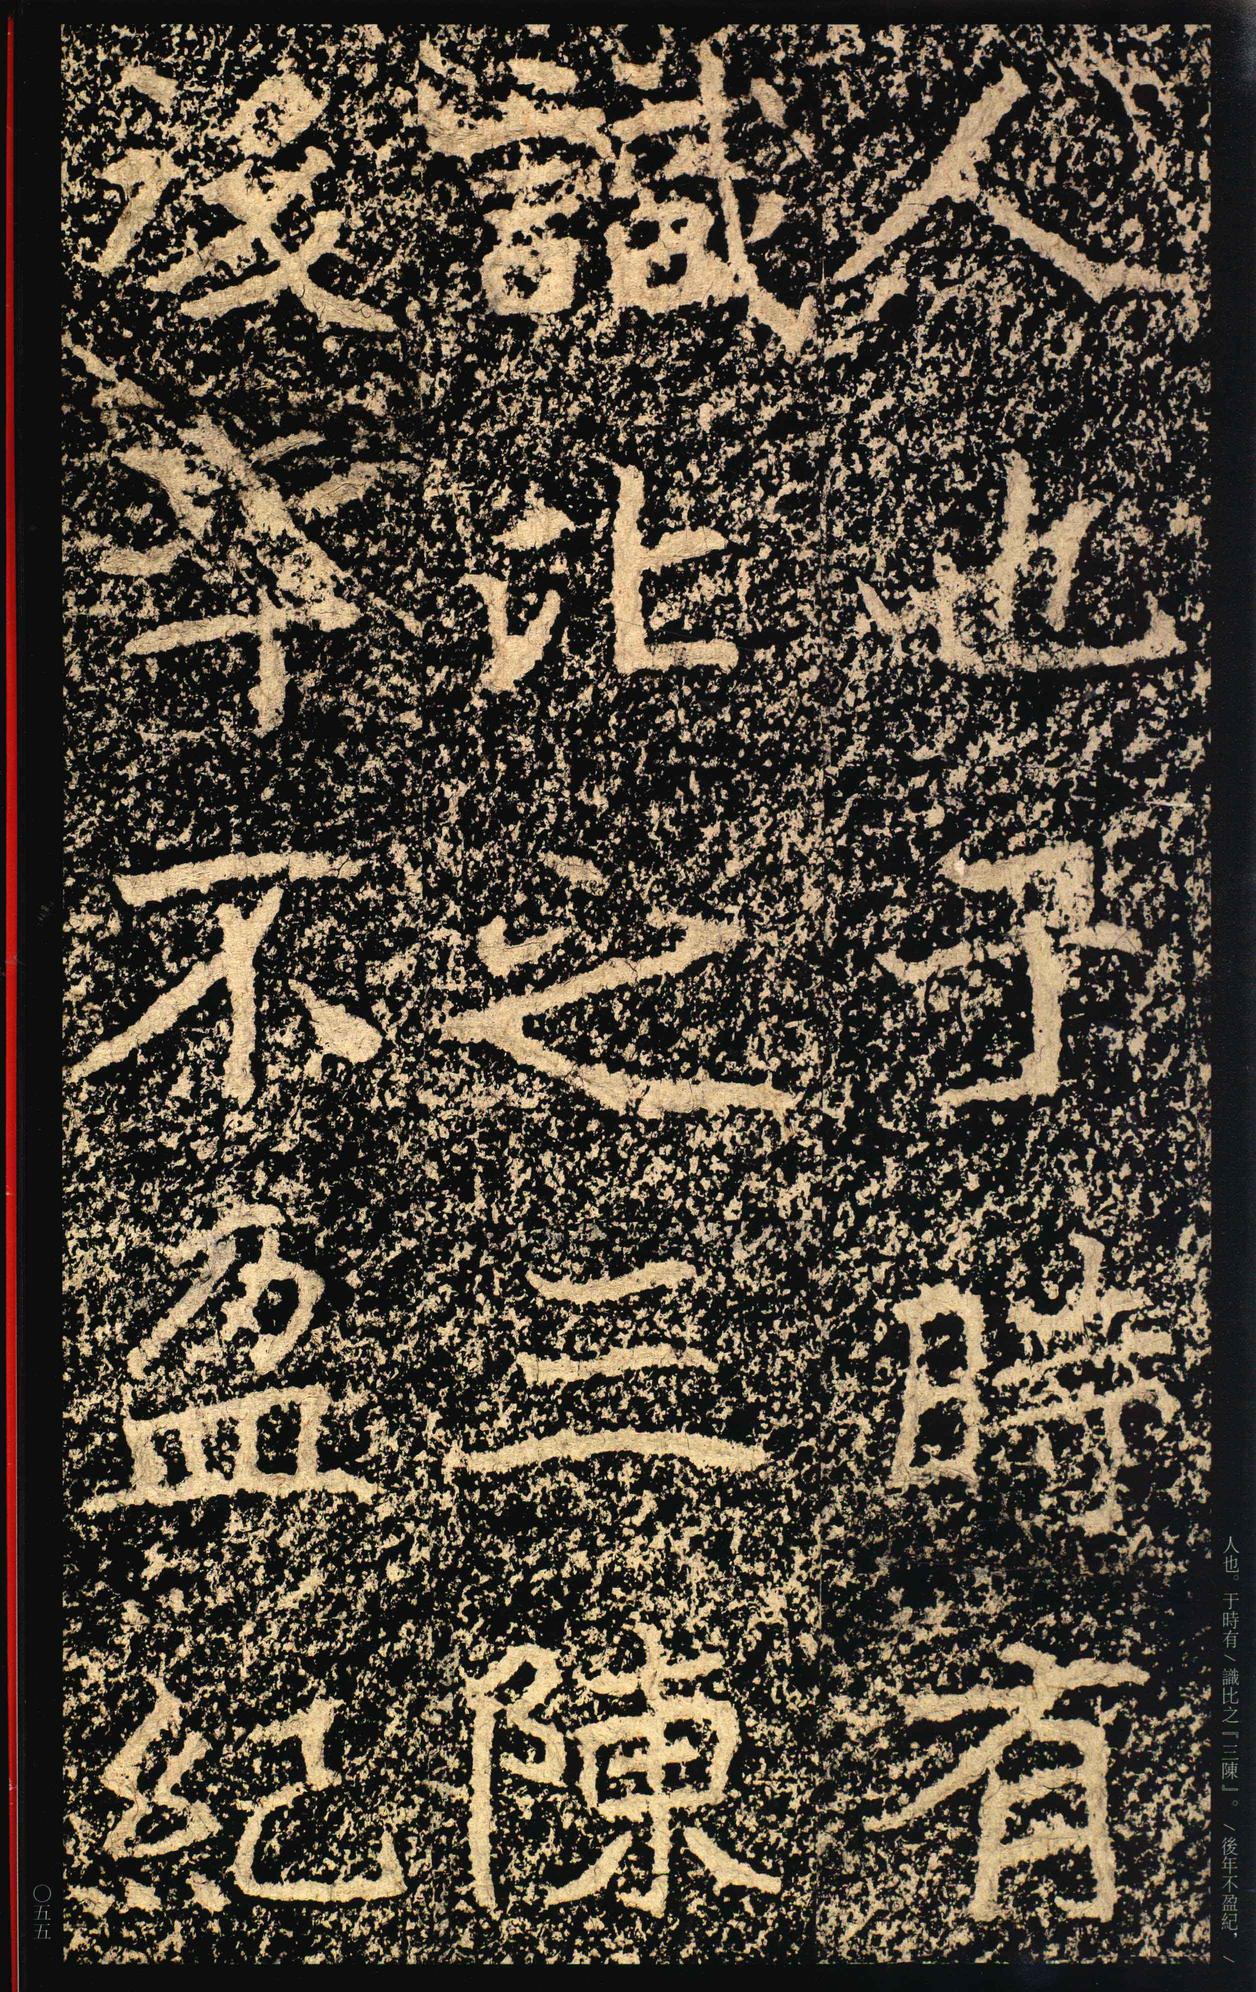 人也于時有
識比之三陳
後年不盈紀
人也。于時有／識比之『三陳』。／後年不盈紀，／
〇五五